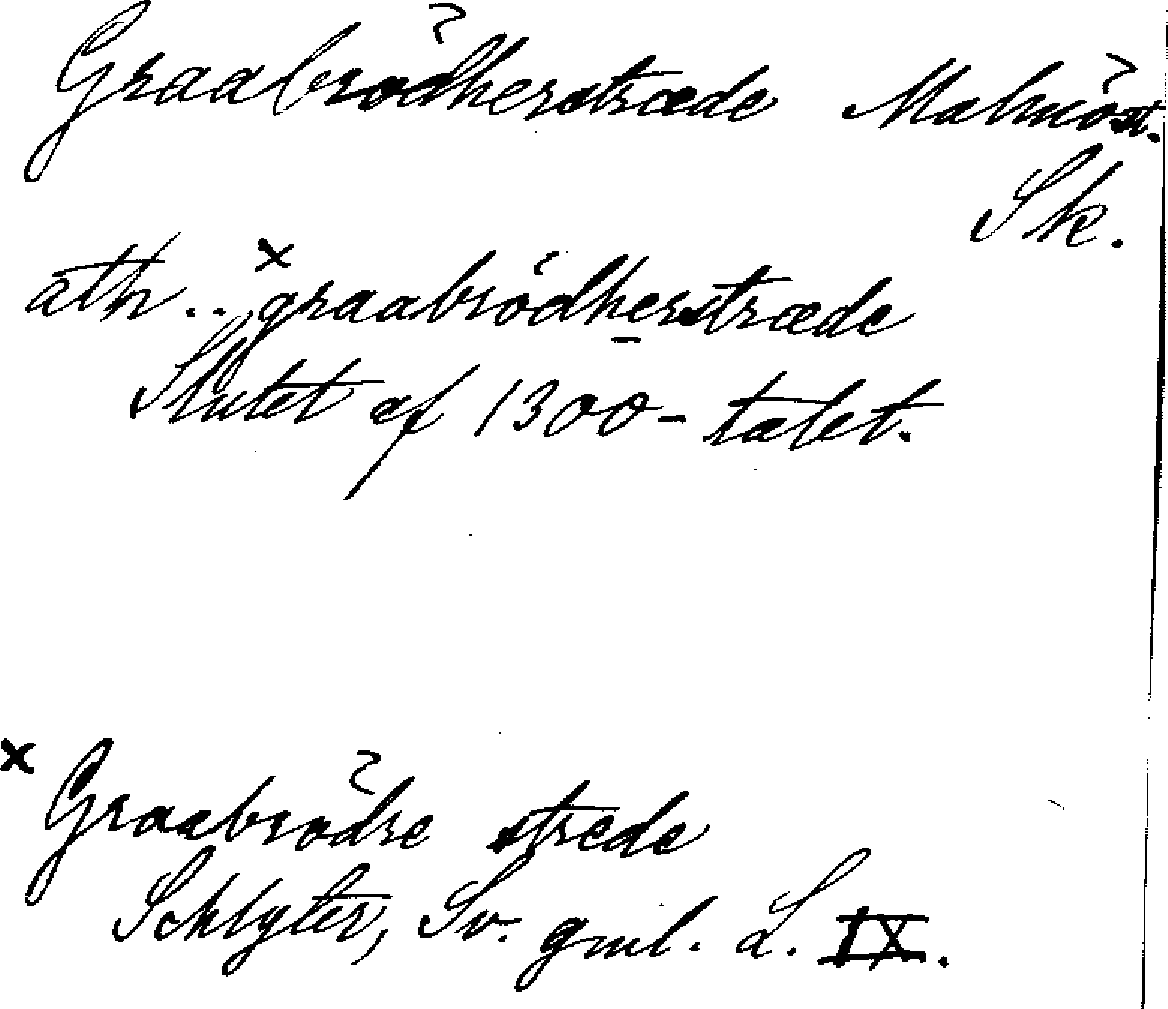 Graabrödherstræde Malmö st.
Sk.
ath .. ×graabrödherstræde
Slutet af 1300-talet.
× Graabrödre stræde
Schlyter, Sv. gml. L. IX.